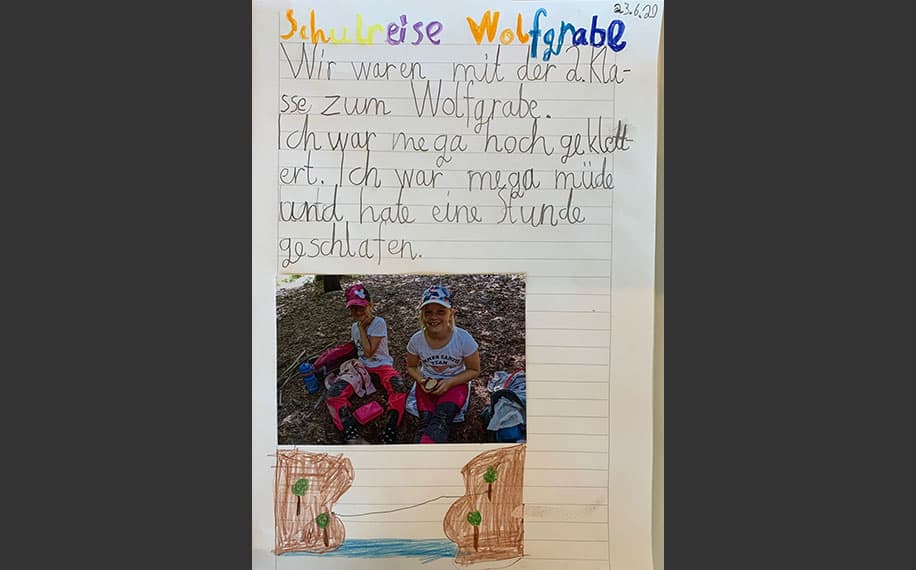 23.6.20
Schulreise Wolfgrabe
Wir waren mit der 2. Kla-
sse zum Wolfgrabe.
Ich war mega hoch geklett
ert. Ich war mega müde
und hate eine Stunde
geschlafen.
SUMMER CAMPING
TEAM